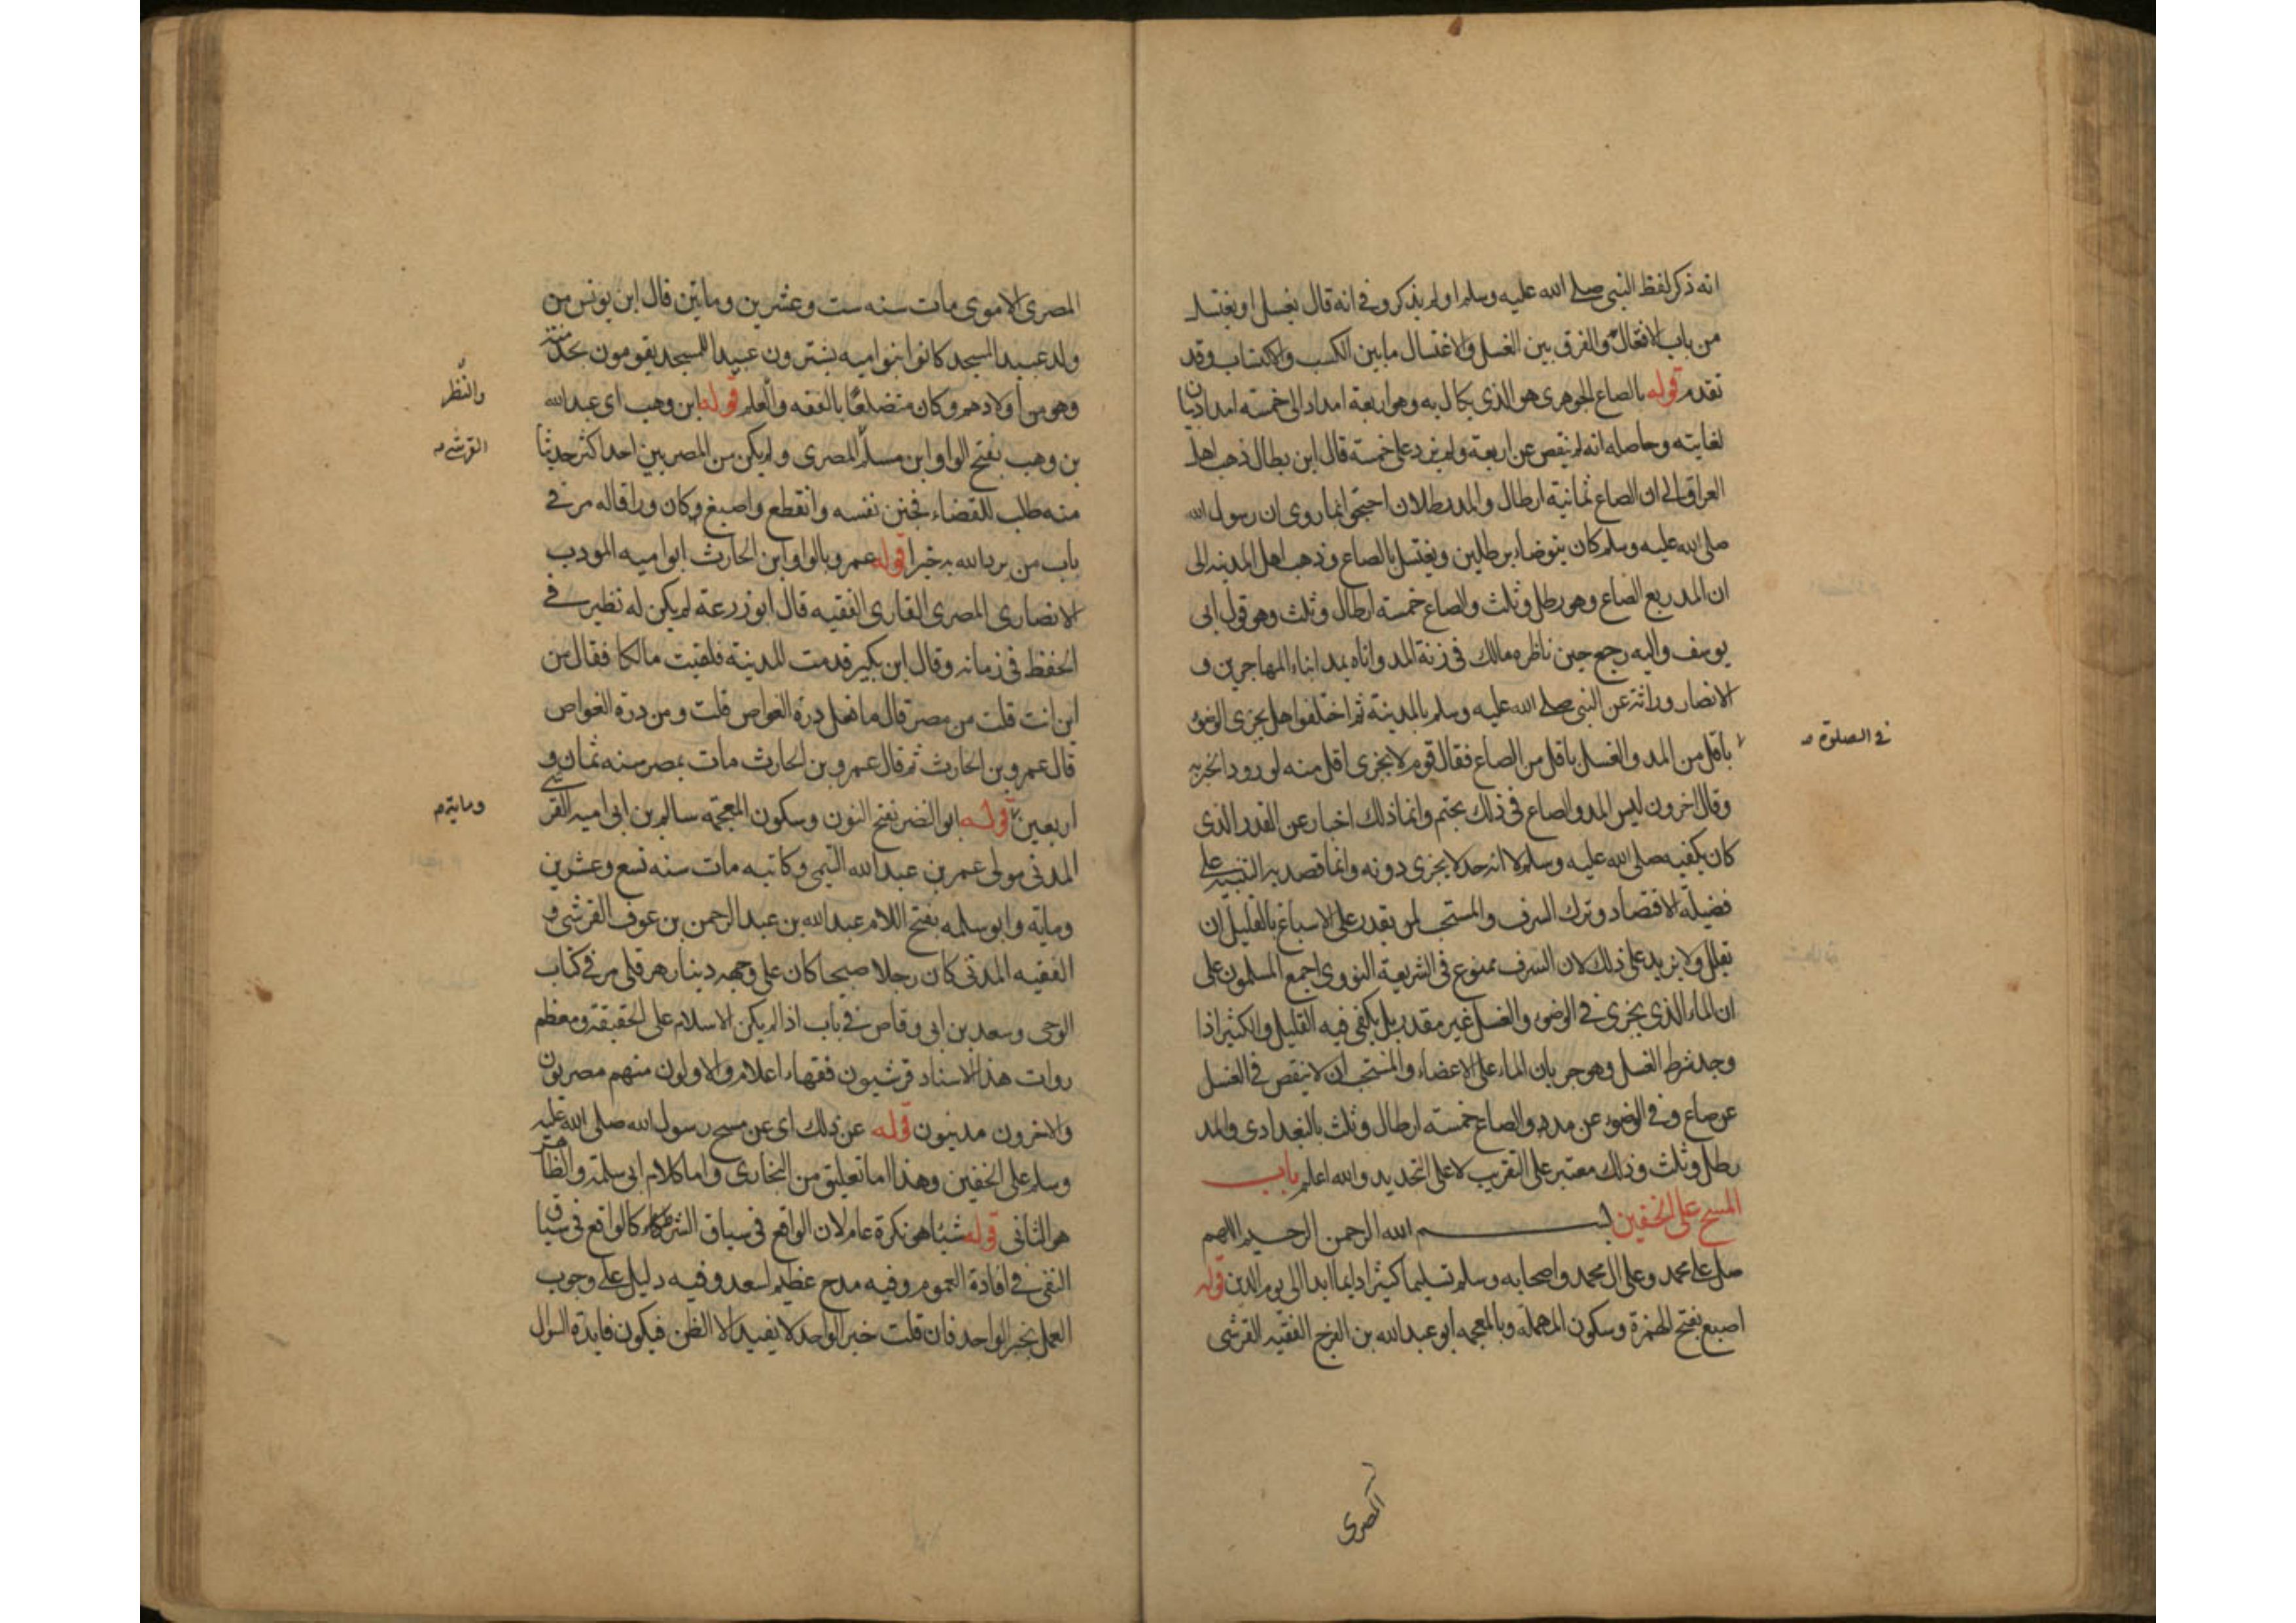 انه ذكر لفظ النبي صلى الله عليه وسلم او لم يذكر وفي انه قال يغسل او يغتسل
من باب الافتعال والفرق بين الغسل والاغتسال ما بين الكسب والاكتساب وقد
تقدم قوله بالصاع الجوهري هو الذي يكال به وهو اربعة امداد الى خمسة امداد بيان
لغايته وحاصله انه لم ينقص عن اربعة ولم يزد على خمسة قال ابن بطال ذهب اهل
العراق الى ان الصاع ثمانية ارطال والمد رطلان احتجوا بما روى ان رسول الله
صلى الله عليه وسلم كان يتوضاء برطلين ويغتسل بالصاع وذهب اهل المدينه الى
ان المد ربع الصاع وهو رطل وثلث والصاع خمسة ارطال وثلث وهو قول ابى
يوسف واليه رجع حين ناظره مالك في زنة المد واتاه بمد ابناء المهاجرين و
الانصار وراثة عن النبي صلى الله عليه وسلم بالمدينة ثم اختلفوا هل يجزى الوضوء
باقل من المد والغسل باقل من الصاع فقال قوم لا يجزى اقل منه لورود الخبر به
في الصلوة
وقال اخرون ليس المد والصاع في ذلك بحتم وانما ذلك اخبار عن القدر الذي
كان يكفيه صلى الله عليه وسلم لا انه حد لا يجزى دونه وانما قصد به التنبيه على
فضيلة الاقتصاد وترك السرف والمستحب لمن يقدر على الاسباغ بالقليل ان
يقلل ولا يزيد على ذلك لان السرف ممنوع في الشريعة النووي اجمع المسلمون على
ان الماء الذي يجزى في الوضوء والغسل غير مقدر بل يكفي فيه القليل والكثير اذا
وجد شرط الغسل وهو جريان الماء على الاعضاء والمستحب ان لا ينقص في الغسل
عن صاع وفي الوضوء عن مد والصاع خمسة ارطال وثلث بالبغدادى والمد
رطل وثلث وذلك معتبر على التقريب لا على التحديد والله اعلم باب
المسح على الخفين بسم الله الرحمن الرحيم اللهم
صل على محمد وعلى ال محمد واصحابه وسلم تسليما كثيرا دايما ابدا الى يوم الدين قوله
اصبغ بفتح الهمزة وسكون المهملة وبالمعجمه ابو عبد الله بن الفرج الفقيه القرشي
المصرى
المصرى الاموى مات سنه ست وعشرين وماتين قال ابن يونس من
ولد عبيد المسجد كانوا بنو اميه يشترون عبيدا للمسجد يقومون بخدمته
وهو من اولادهم وكان متضلعا بالفقه والعلم قوله ابن وهب اى عبد الله
والنظر
بن وهب بفتح الواو ابن مسلم المصرى ولم يكن من المصريين احد اكثر حديثا
القرشي
منه طلب للقضاء فجنن نفسه وانقطع واصبغ وكان وراقا له مر في
باب من يرد الله به خيرا قوله عمرو بالواو ابن الحارث ابو اميه المودب
الانصارى المصرى القارى الفقيه قال ابو زرعة لم يكن له نظير في
الحفظ في زمانه وقال ابن بكير قدمت المدينة فلقيت مالكا فقال من
اين انت قلت من مصر قال ما فعل درة الغواص قلت ومن درة الغواص
قال عمرو بن الحارث ثم قال عمرو بن الحارث مات بمصر سنه ثمان و
اربعين قوله ابو النضر بفتح النون وسكون المعجمة سالم بن ابى اميه القرشي
وماية
المدنى مولى عمر بن عبد الله التيمي وكاتبه مات سنه تسع وعشرين
وماية وابو سلمه بفتح اللام عبد الله بن عبد الرحمن بن عوف القرشي و
الفقيه المدنى كان رجلا صبيحا كان على وجهه دينار هرقلى مر في كتاب
الوحى وسعد بن ابى وقاص في باب اذا لم يكن الاسلام على الحقيقة ومعظم
روات هذا الاسناد قرشيون فقهاء اعلام والاولون منهم مصريون
والاخرون مدنيون قوله عن ذلك اى عن مسح رسول الله صلى الله عليه
وسلم على الخفين وهذا اما تعليق من البخارى واما كلام ابى سلمة والظاهر
هو الثانى قوله شيئا هو نكرة عام لان الواقع في سياق الشرط كالواقع في سياق
النفي في افادة العموم وفيه مدح عظيم لسعد وفيه دليل على وجوب
العمل بخبر الواحد فان قلت خبر الواحد لا يفيد الا الظن فيكون فايدة السوال